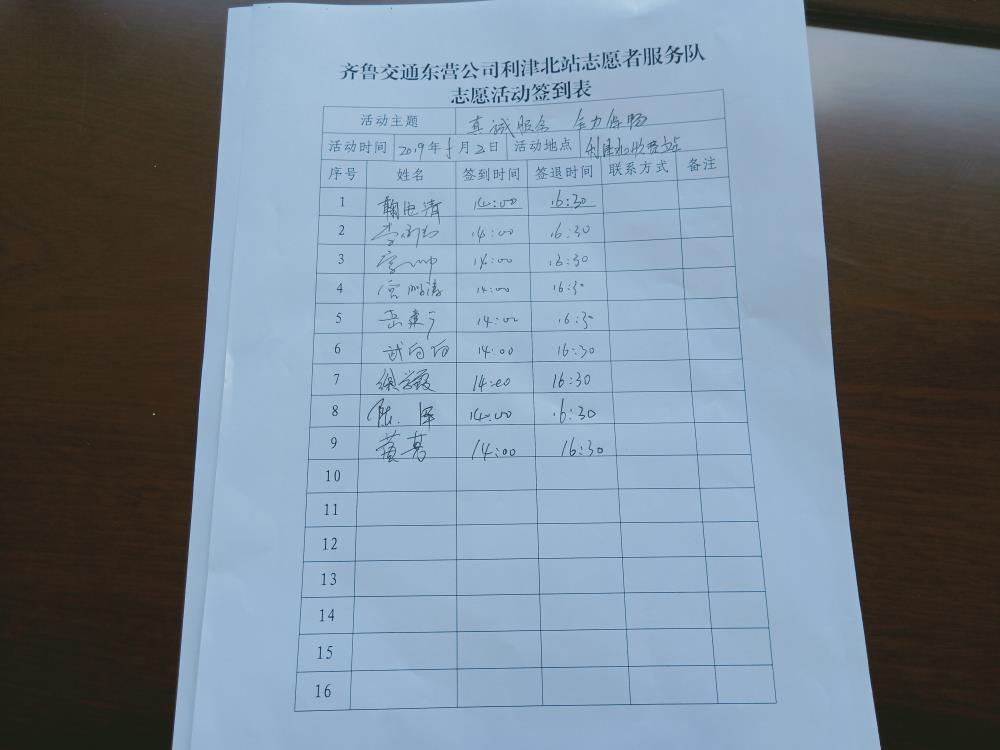 齐鲁交通东营公司利津北站志愿者服务队
志愿活动签到表
活动主题 真诚服务 全力保畅
活动时间 2019年 月2日 活动地点 利津北收费站
序号 姓名 签到时间 签退时间 联系方式 备注
1 14:00 16:30
2 14:00 16:30
3 14:00 16:30
4 宫鹏涛 14:00 16:30
5 岳建 14:00 16:30
6 武 14:00 16:30
7 徐 14:00 16:30
8 14:00 16:30
9 14:00 16:30
10
11
12
13
14
15
16